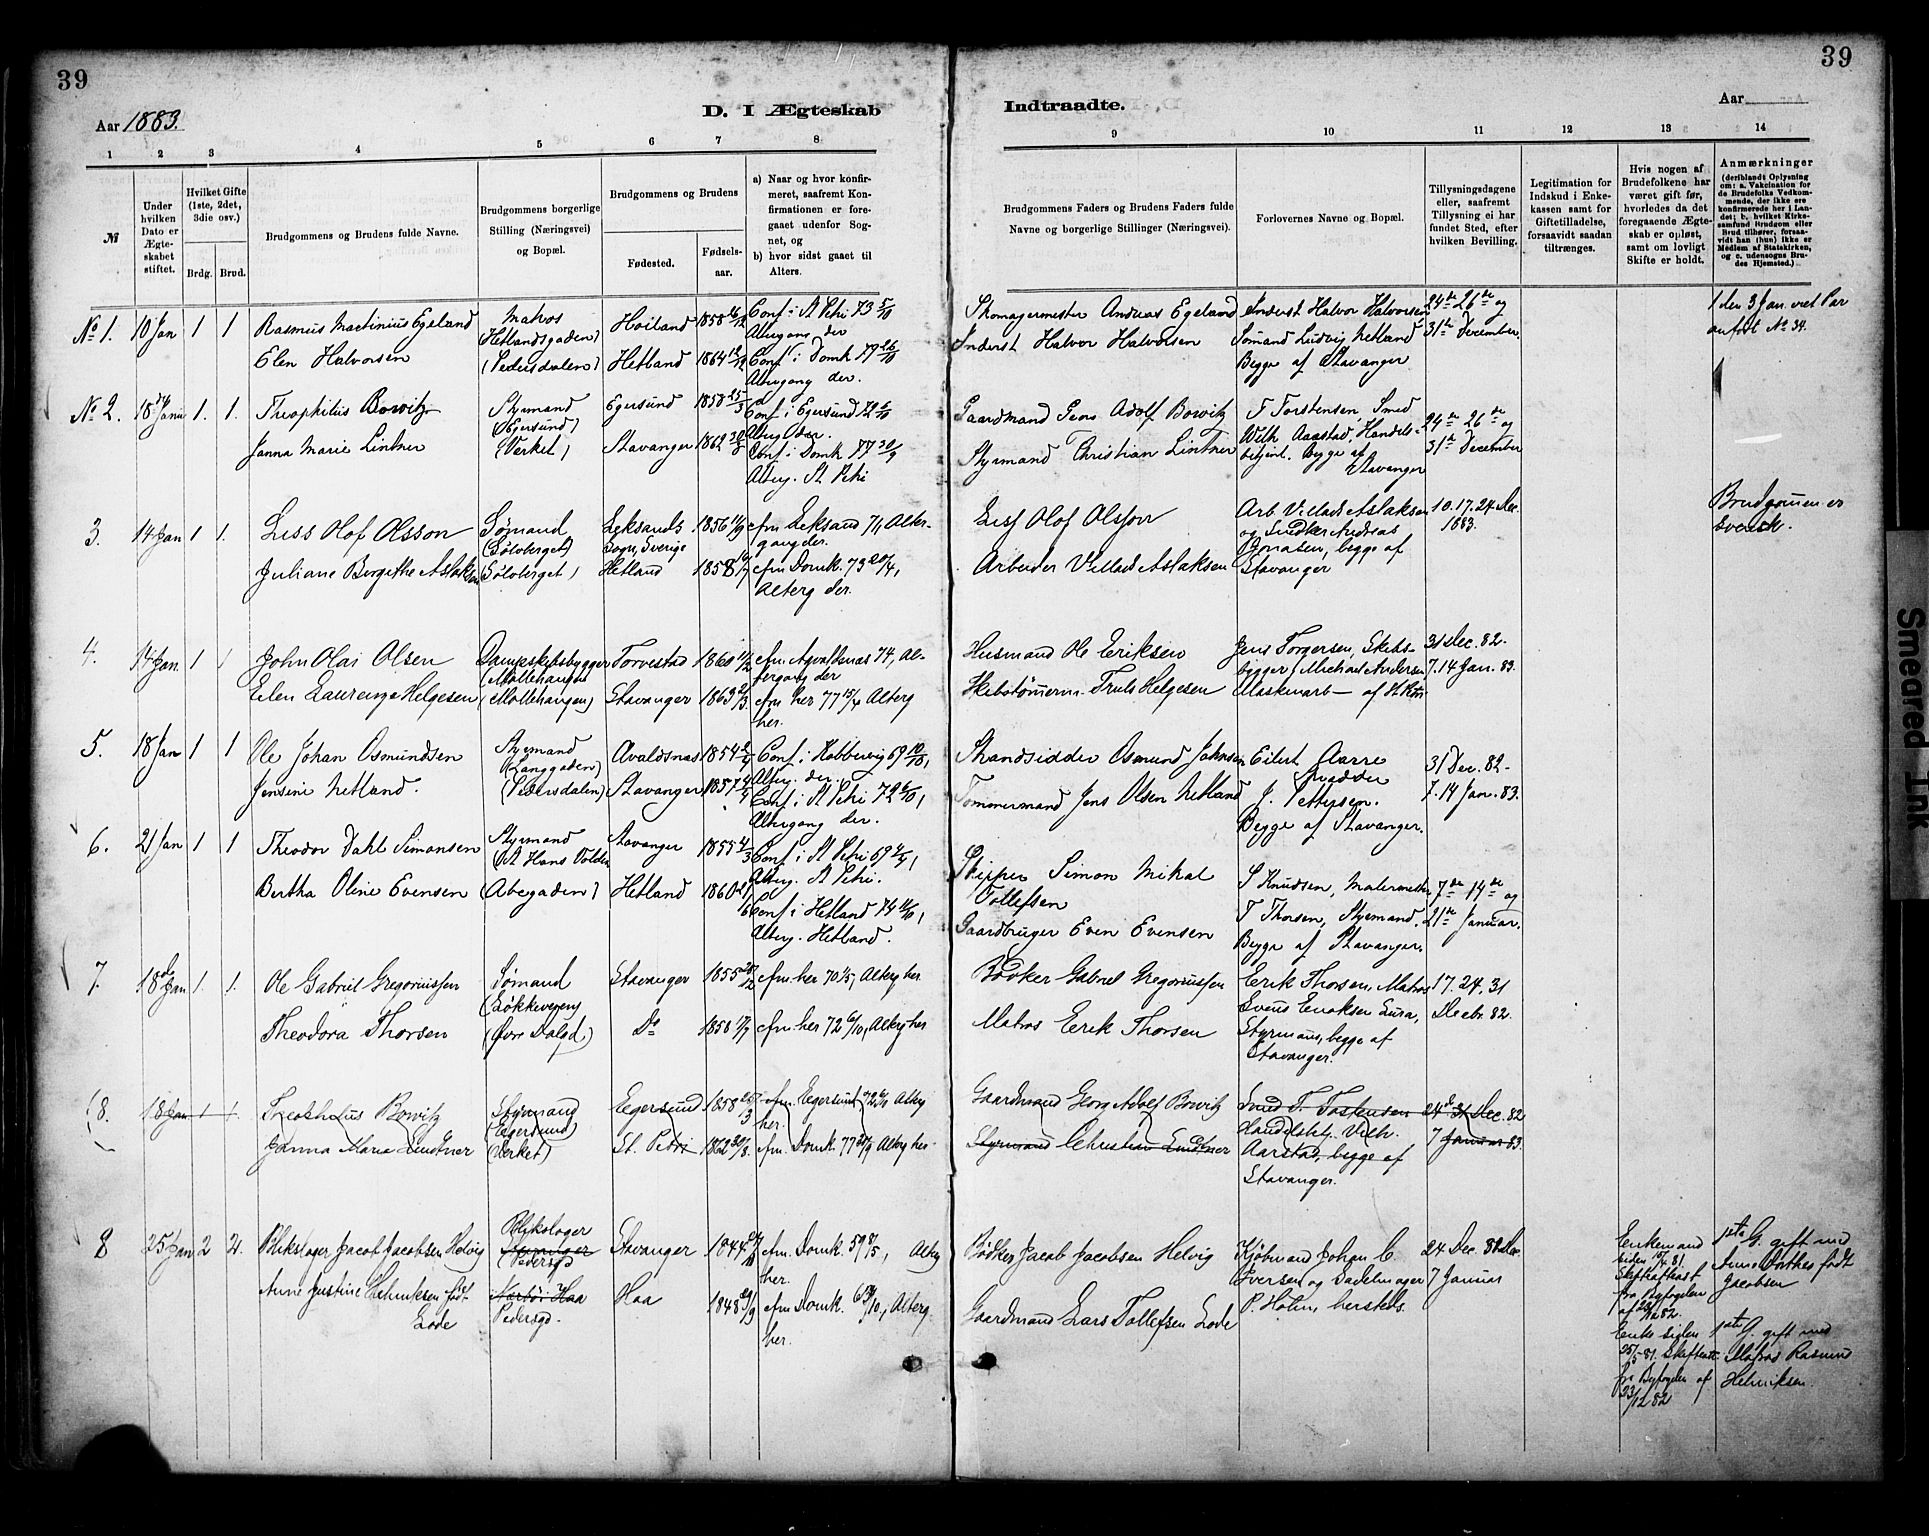 39
39
Aar 1883.
D. I Ægteskab
Indtraadte.
Aar
1 2 3 4 5 6 7 8
9 10 11 12 13 14
№
Under hvilken Dato er Ægteskabet stiftet.
Hvilket Gifte (1ste, 2det, 3die osv.)
Brdg. Brud.
Brudgommens og Brudens fulde Navne.
Brudgommens borgerlige Stilling (Næringsvei) og Bopæl.
Brudgommens og Brudens
Fødested.
Fødselsaar.
a) Naar og hvor konfirmeret, saafremt Konfirmationen er foregaaet udenfor Sognet, og
b) hvor sidst gaaet til Alters.
Brudgommens Faders og Brudens Faders fulde Navne og borgerlige Stillinger (Næringsvei).
Forlovernes Navne og Bopæl.
Tillysningsdagene eller, saafremt Tillysning ei har fundet Sted, efter hvilken Bevilling.
Legitimation for Indskud i Enkekassen samt for Giftetilladelse, forsaavidt saadan tiltrænges.
Hvis nogen af Brudefolkene har været gift før, hvorledes da det foregaaende Ægteskab er opløst, samt om lovligt Skifte er holdt.
Anmærkninger
(deriblandt Oplysning om: a. Vakcination for de Brudefolks Vedkommende, der ikke ere konfirmerede her i Landet; b. hvilket Kirkesamfund Brudgom eller Brud tilhører, forsaavidt han (hun) ikke er Medlem af Statskirken, og c. udensogns Brudes Hjemsted.)
No 1. 10 Jan 1 1 Rasmus Martinius Egeland Matros (Hetlandsgaden) Hoiland 1858 Conf i St Petri 73 5/10 Altergang der
Skomagermester Andreas Egeland Inderst Halvor Halvorsen 24de 26de og
1 den 3 Jan. viet Par anført No 34.
Elen Halvorsen (Pedersdalen) Hetland 1864 Conf i Domk 79 26/10 Altergang der.
Inderst Halvor Halvorsen Sømand Ludvig Netland Begge af Stavanger 31te December
No 2. 18de Janu 1. 1. Theophilus Bowitz Styrmand (Egersund) Egersund 1858 25/3 Conf i Egersund 72 6/10 Alterg der.
Gaardmand Georg Adolf Bowitz T Torstensen, Smed 24de 26de og
Janna Marie Lintner (Verket) Stavanger 1862 30/8 Conf i Domk 77 30/9 Alterg. St Petri
Styrmand Christian Lintner Wilh Aarstad, Handelsbetjent. Begge af Stavanger 31te December
3. 14 Jan 1 1. Liss Olof Olsson Sømand (Sølvberget) Leksands Sogn, Sverige 1856 11/9 cfm Leksand 71, Altergang der.
Liss Olof Olsson Arb Villads Aslaksen og Snedker Andreas Jonasen, begge af Stavanger 10. 17. 24. Dec. 1883.
Brudgommen er svensk.
Juliane Bergithe Aslaksen (Sølvberget) Hetland 1858 cfm Domk. 73 20/4, Alterg der.
Arbeider Villads Aslaksen
4. 14 Jan 1 1 John Olai Olsen Dampskibsbygger (Møllehaugen) Torvestad 1860 11/12 cfm Avaldsnas 74, Altergang der
Husmand Ole Eriksen Jens Torgersen, Skibsbygger, Michael Andersen Maskinarb 31 Dec. 82. 7. 14 Jan. 83.
Elen Laurenze Helgesen (Møllehaugen) Stavanger 1863 cfm her 77 15/4 Alterg her.
Skibstømrm. Truls Helgesen
5. 18 Jan 1 1 Ole Johan Osmundsen Styrmand (Langgaden) Avaldsnas 1854 Conf i Kobbervig 69 10/10, Alterg. der.
Strandsidder Osmund Johnsen Eilert Aarre 31 Dec. 82.
Jensine Netland. (Pedersdalen) Stavanger 1857 Conf i St Petri 72 6/10, Altergang der.
Tømmermand Jens Olsen Netland J. Pettersen. Begge af Stavanger. 7. 14 Jan. 83.
6. 21 Jan 1 1 Theodor Dahl Simonsen Styrmand (St Hans Volden) Stavanger 1855 4/3 Conf i St Petri 69 4/4, Alterg. St Petri.
Skipper Simon Mikal Tollefsen S Knudsen, Malermester 7de 14de og
Bertha Oline Evensen (Abegaden) Hetland 1860 Conf i Hetland 74 11/10, Alterg. Hetland.
Gaardbruger Even Evensen T Thorsen, Styrmand. Begge af Stavanger. 21de Januar.
7. 18de Jan 1 1. Ole Gabriel Gregoriussen Sømand (Løkkeveyen) Stavanger 1855 cfm. her 70 1/5, Alterg her
Bødker Gabriel Gregoriussen Erik Thorsen, Matros 17. 24. 31 Decbr. 82.
Theodora Thorsen (Øvre Dalgd.) Do 1858 17/7 cfm. her 72 6/10, Alterg her
Matros Erik Thorsen Svend Enoksen Lura, Styrmand, begge af Stavanger.
(8. 18 Jan 1 1. Theophilus Bowitz Styrmand (Egersund) Egersund 1858 25/3 cfm. Egersund 72 6/10 Alterg her.
Gaardmand Georg Adolf Bowitz Smed T. Tostensen 24de 31 Dec. 82
Janna Maria Lindtner (Verket) St. Petri 1862 30/8. cfm. Domk. 77 30/9 Alterg her
Styrmand Christian Lindtner Handelsbtj. Vilh. Aarstad, begge af Stavanger. 7 Januar 83.
8 25 Jan 2 2. Blikslager Jacob Jacobsen Helvig Blikslager Pedersgd Stavanger 1844 cfm. Domk. 59 8/5, Alterg her.
Bødker Jacob Jacobsen Helvig Kjøbmand Johan C. Iversen og Sadelmager P. Holm, hersteds. 24 Dec. 82 7 Januar
Enkemand siden 17/4 81. Skifteattest fra Byfogden af 23/12 82.
1ste G. gift med Anne Dorthea født Jacobsen
Anne Justine Henriksen født Lode Nærbø i Haa Pedersgd. Haa 1848 29/9 cfm. Domk. Alterg. her.
Gaardmand Lars Tollefsen Lode
Enke siden 25/5 81. Skifteatt fra Byfogden af 23/12 82
1ste G. gift med Matros Rasmus Henriksen.
Smeared Ink